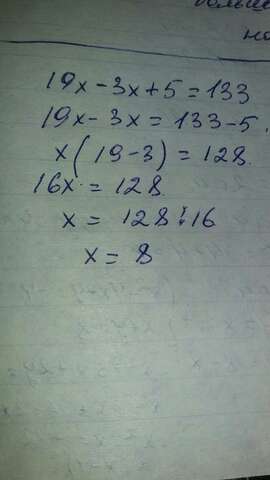 19x-3x+5=133
19x-3x=133-5
x(19-3)=128.
16x=128.
x=128:16
x=8